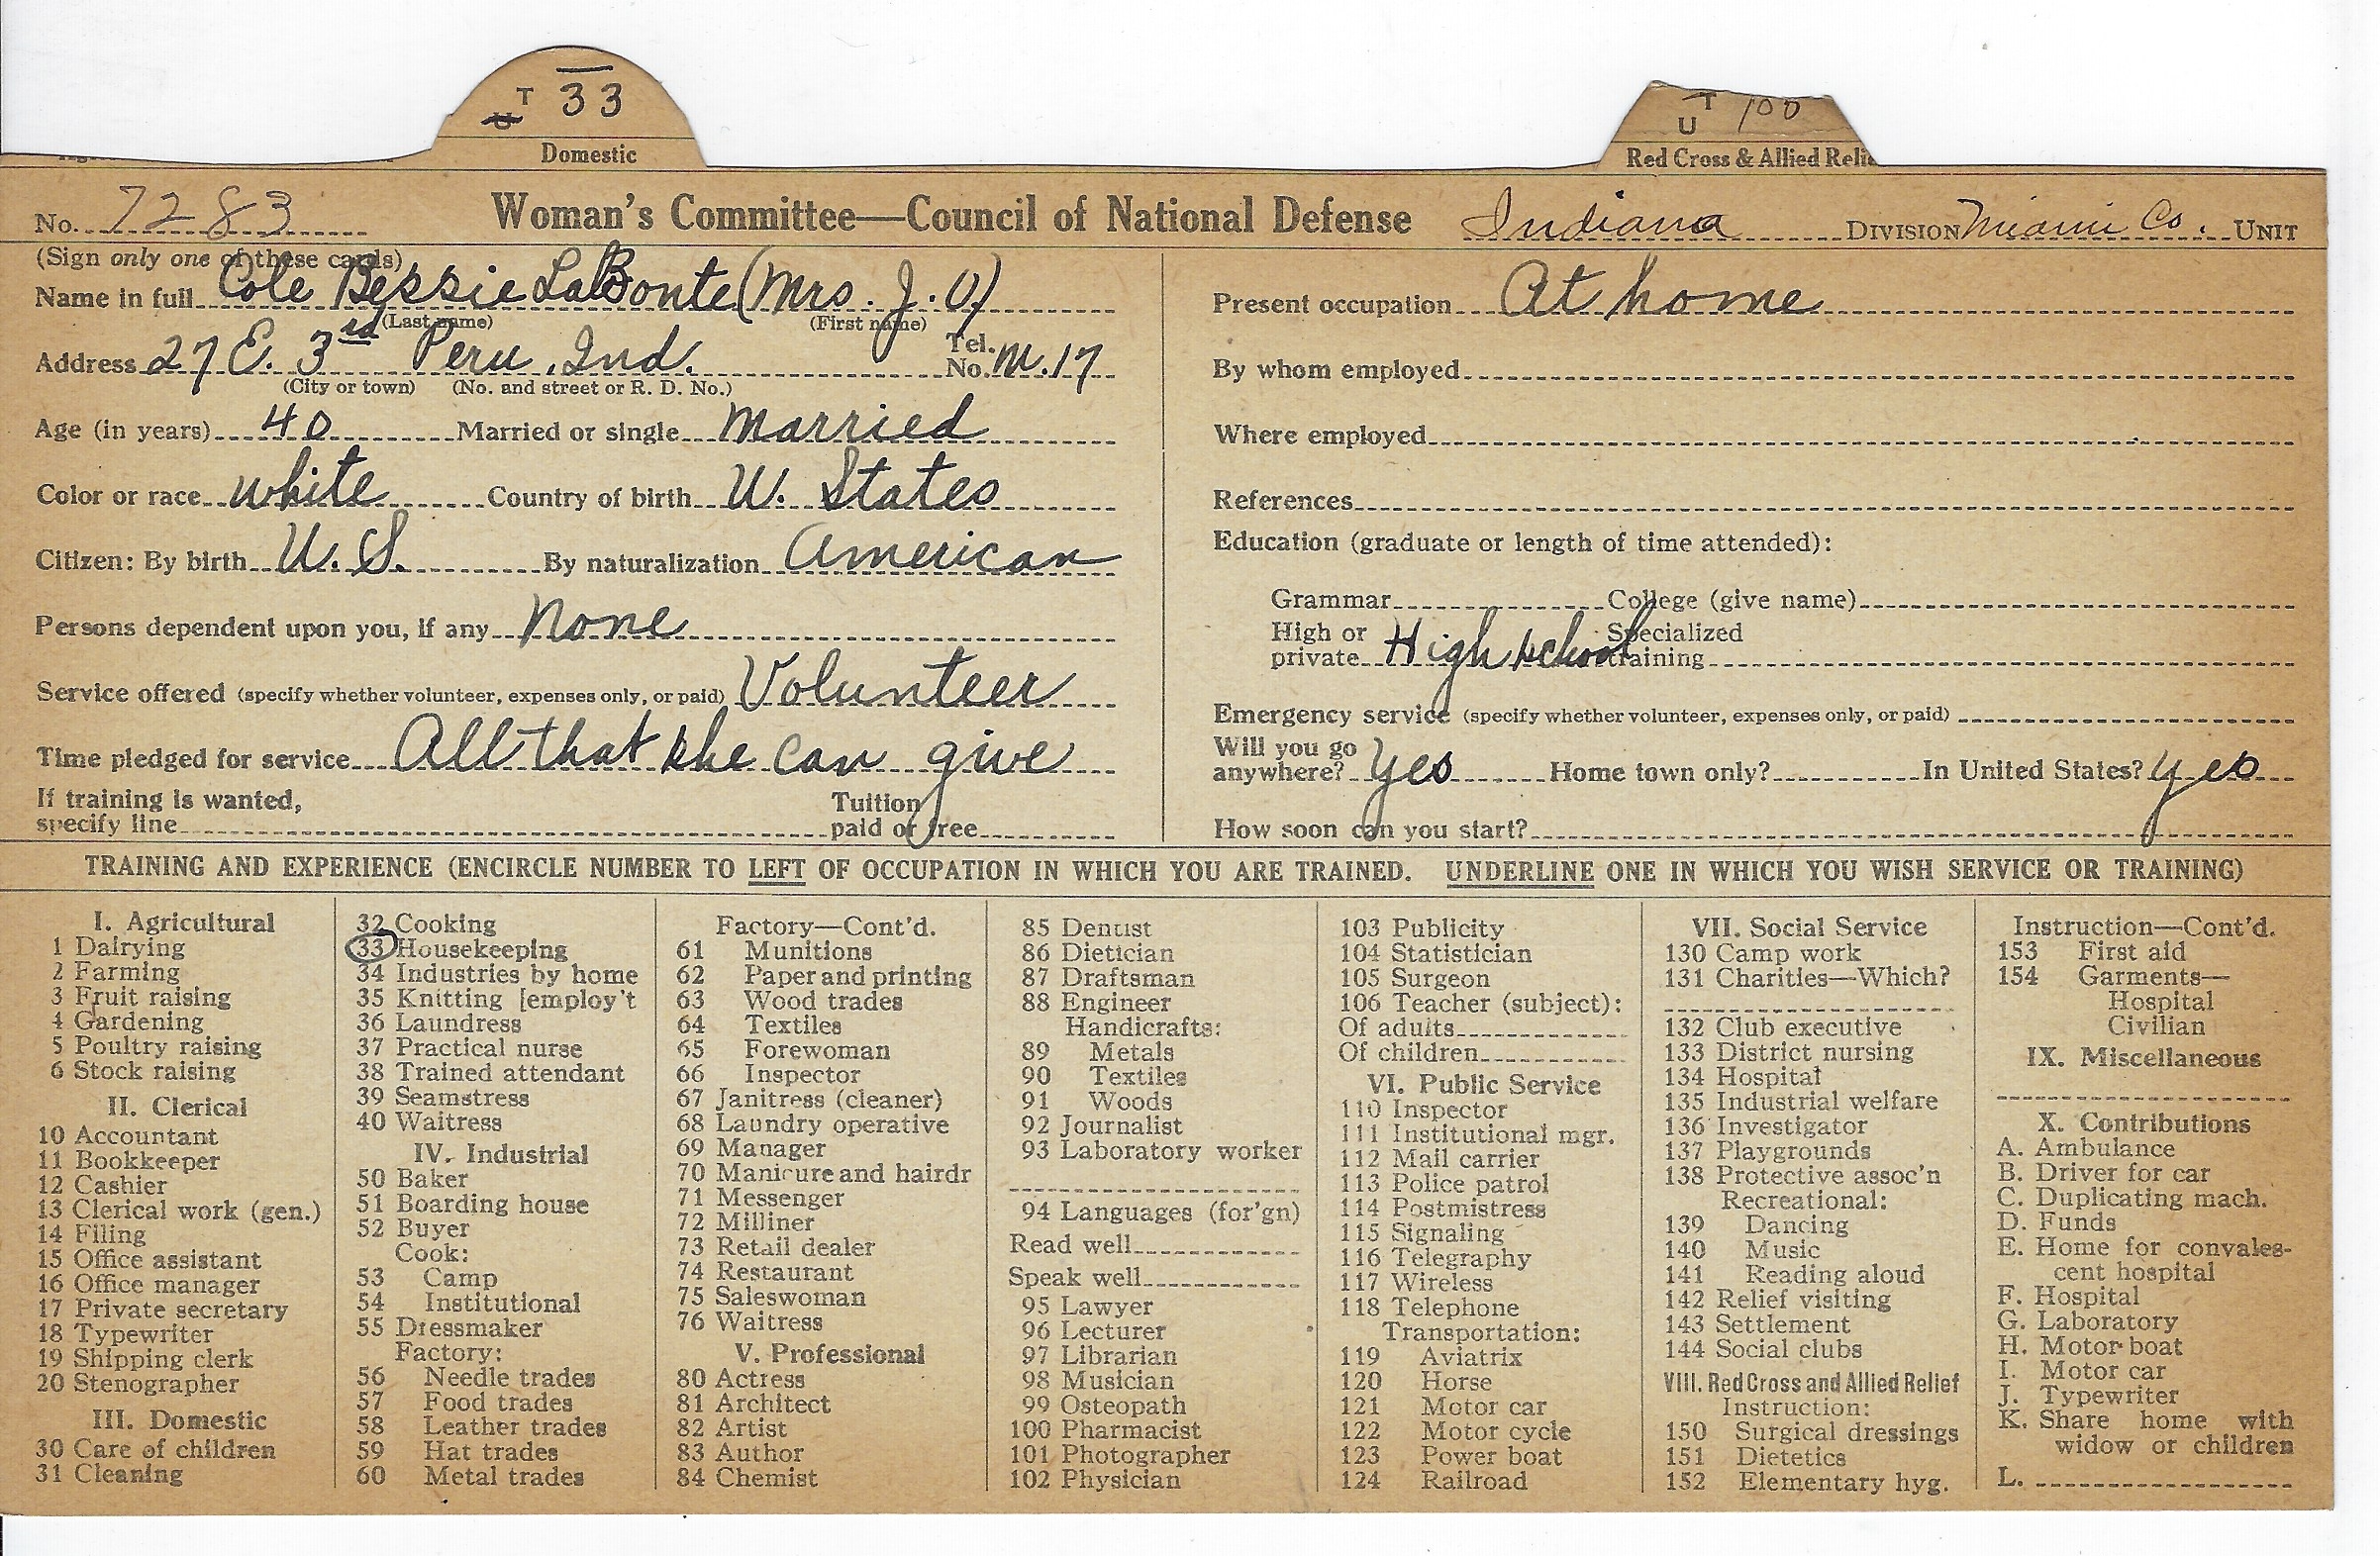 T 33
U
Domestic
T 100
U
Red Cross & Allied Relie
No. 7283 Woman's Committee—Council of National Defense Indiana DIVISION Miami Co. UNIT
(Sign only one of these cards)
Name in full Cole Bessie LaBonte (Mrs. J. O)
(Last name) (First name)
Address 27 E. 3rd Peru, Ind. Tel. No. M.17
(City or town) (No. and street or R. D. No.)
Age (in years) 40 Married or single Married
Color or race white Country of birth U. States
Citizen: By birth U. S. By naturalization American
Persons dependent upon you, if any None
Service offered (specify whether volunteer, expenses only, or paid) Volunteer
Time pledged for service All that she can give
If training is wanted,
specify line Tuition paid or free
Present occupation At home
By whom employed
Where employed
References
Education (graduate or length of time attended):
Grammar College (give name)
High or private High school Specialized training
Emergency service (specify whether volunteer, expenses only, or paid)
Will you go anywhere? Yes Home town only? In United States? Yes
How soon can you start?
TRAINING AND EXPERIENCE (ENCIRCLE NUMBER TO LEFT OF OCCUPATION IN WHICH YOU ARE TRAINED. UNDERLINE ONE IN WHICH YOU WISH SERVICE OR TRAINING)
I. Agricultural
1 Dairying
2 Farming
3 Fruit raising
4 Gardening
5 Poultry raising
6 Stock raising
II. Clerical
10 Accountant
11 Bookkeeper
12 Cashier
13 Clerical work (gen.)
14 Filing
15 Office assistant
16 Office manager
17 Private secretary
18 Typewriter
19 Shipping clerk
20 Stenographer
III. Domestic
30 Care of children
31 Cleaning
32 Cooking
33 Housekeeping
34 Industries by home
35 Knitting [employ't
36 Laundress
37 Practical nurse
38 Trained attendant
39 Seamstress
40 Waitress
IV. Industrial
50 Baker
51 Boarding house
52 Buyer
Cook:
53 Camp
54 Institutional
55 Dressmaker
Factory:
56 Needle trades
57 Food trades
58 Leather trades
59 Hat trades
60 Metal trades
Factory—Cont'd.
61 Munitions
62 Paper and printing
63 Wood trades
64 Textiles
65 Forewoman
66 Inspector
67 Janitress (cleaner)
68 Laundry operative
69 Manager
70 Manicure and hairdr
71 Messenger
72 Milliner
73 Retail dealer
74 Restaurant
75 Saleswoman
76 Waitress
V. Professional
80 Actress
81 Architect
82 Artist
83 Author
84 Chemist
85 Dentist
86 Dietician
87 Draftsman
88 Engineer
Handicrafts:
89 Metals
90 Textiles
91 Woods
92 Journalist
93 Laboratory worker
94 Languages (for'gn)
Read well
Speak well
95 Lawyer
96 Lecturer
97 Librarian
98 Musician
99 Osteopath
100 Pharmacist
101 Photographer
102 Physician
103 Publicity
104 Statistician
105 Surgeon
106 Teacher (subject):
Of adults
Of children
VI. Public Service
110 Inspector
111 Institutional mgr.
112 Mail carrier
113 Police patrol
114 Postmistress
115 Signaling
116 Telegraphy
117 Wireless
118 Telephone
Transportation:
119 Aviatrix
120 Horse
121 Motor car
122 Motor cycle
123 Power boat
124 Railroad
VII. Social Service
130 Camp work
131 Charities—Which?
132 Club executive
133 District nursing
134 Hospital
135 Industrial welfare
136 Investigator
137 Playgrounds
138 Protective assoc'n
Recreational:
139 Dancing
140 Music
141 Reading aloud
142 Relief visiting
143 Settlement
144 Social clubs
VIII. Red Cross and Allied Relief
Instruction:
150 Surgical dressings
151 Dietetics
152 Elementary hyg.
Instruction—Cont'd.
153 First aid
154 Garments—
Hospital
Civilian
IX. Miscellaneous
X. Contributions
A. Ambulance
B. Driver for car
C. Duplicating mach.
D. Funds
E. Home for convales-
cent hospital
F. Hospital
G. Laboratory
H. Motor boat
I. Motor car
J. Typewriter
K. Share home with
widow or children
L.